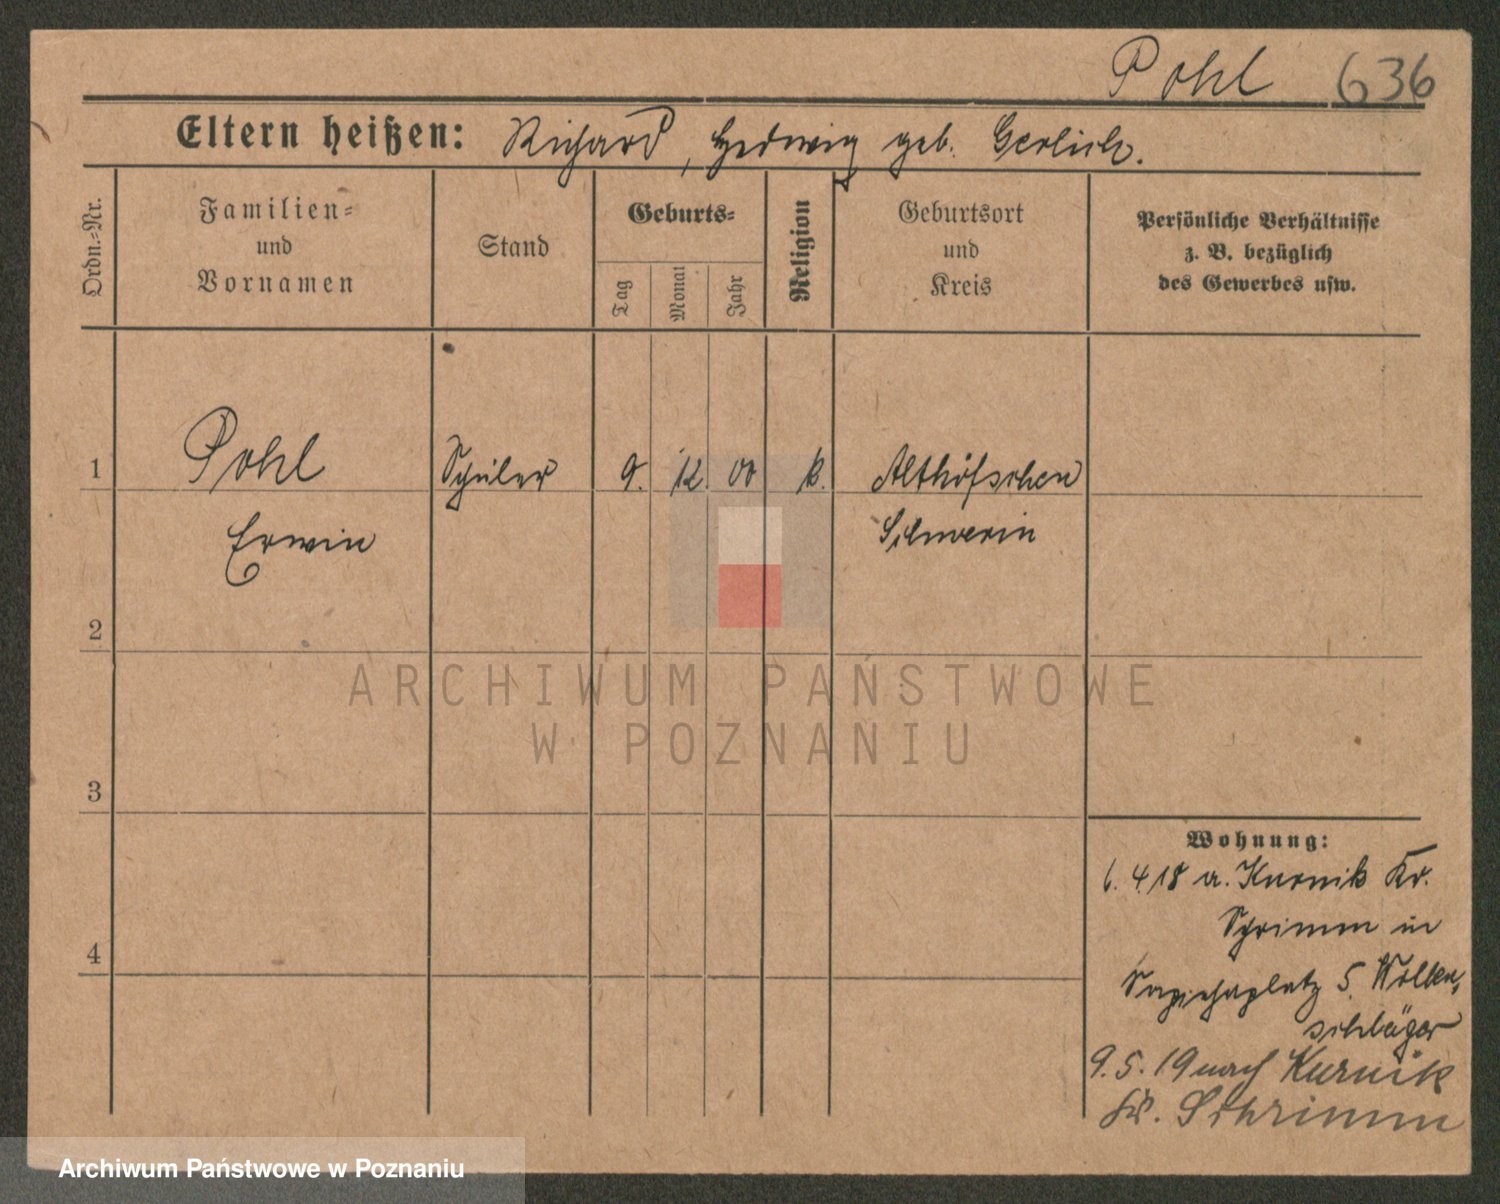 Pohl 636
Eltern heißen: Richard, Hedwig geb. Gerlich.
Ordn.=Nr.
Familien=
und
Vornamen
Stand
Geburts=
Tag
Monat
Jahr
Religion
Geburtsort
und
Kreis
Persönliche Verhältnisse
z. B. bezüglich
des Gewerbes usw.
1 Pohl Schüler 9. 12 00 k. Althöfchen
Erwin Schwerin
2
3
4
Wohnung:
6. 4 18 a. Kurnik Kr.
Schrimm in
Sapiehaplatz 5. Wollen
schläger
9. 5. 19 nach Kurnik
Kr. Schrimm
ARCHIWUM PAŃSTWOWE
W POZNANIU
Archiwum Państwowe w Poznaniu